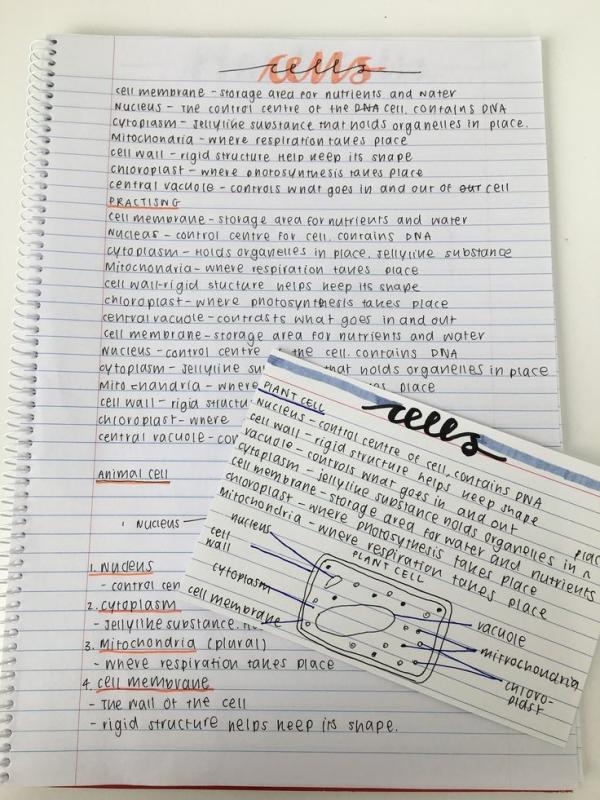 cells
cell membrane - storage area for nutrients and water
Nucleus - The control centre of the DNA cell, contains DNA
cytoplasm - Jellylike substance that holds organelles in place.
Mitochondria - where respiration takes place
cell wall - rigid structure help keep its shape
chloroplast - where photosynthesis takes place
central vacuole - controls what goes in and our of our cell
PRACTISNG
cell membrane - storage area for nutrients and water
Nucleus - control centre for cell, contains DNA
cytoplasm - holds organelles in place, jellylike substance
Mitochondria - where respiration takes place
cell wall - rigid stucture helps keep its shape
chloroplast - where photosynthesis takes place
central vacuole - contrasts what goes in and out
cell membrane - storage area for nutrients and water
Nucleus - control centre the cell, contains DNA
cytoplasm - Jellylike that holds organelles in place
Mitochandria - where place
cell wall - rigid
chloroplast - where
central vacuole -
Animal cell
Nucleus
1. Nucleus
- control cen
2. cytoplasm
- Jellylike substance.
3. Mitochondria (plural)
- where respiration takes place
4. cell membrane
- The wall of the cell
- rigid structure helps keep its shape.
cells
PLANT CELL
Nucleus - control centre of cell, contains DNA
cell wall - rigid structure helps keep shape
vacuole - controls what goes in and out
cytoplasm - jellylike substance holds organelles in
cell membrane - storage area for water and nutrients
chloroplast - where photosythesis takes place
Mitochondria - where respiration takes place
PLANT CELL
nucleus
cell
wall
cytoplasm
cell membrane
vacuole
mitrochondria
chloro-
plast